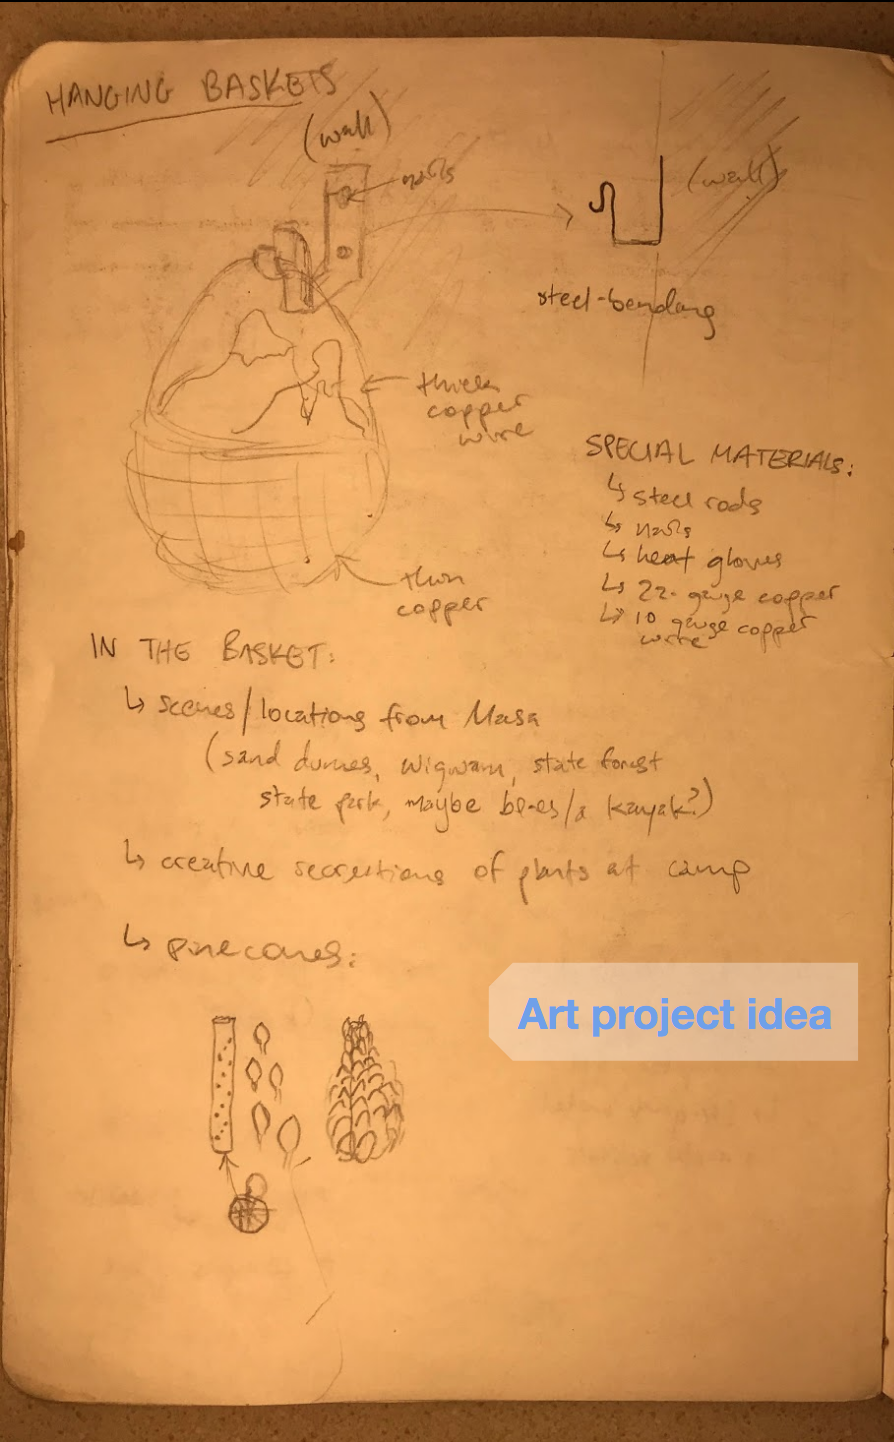 HANGING BASKETS
(wall)
nails
(wall)
steel-bending
thick
copper
wire
SPECIAL MATERIALS:
↳ steel rods
↳ nails
↳ heat gloves
↳ 22-gauge copper
↳ 10 gauge copper
wire
thin
copper
IN THE BASKET:
↳ scenes/locations from Masa
(sand dunes, wigwam, state forest
state park, maybe bikes/a kayak?)
↳ creative secretions of plants at camp
↳ pinecones:
Art project idea